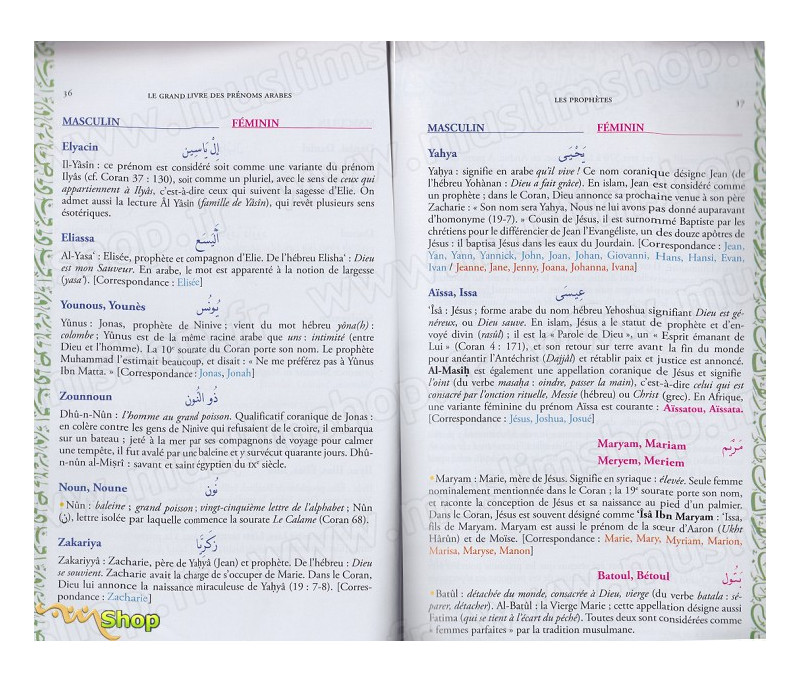 36
LE GRAND LIVRE DES PRÉNOMS ARABES
MASCULIN FÉMININ
Elyacin إِلْ يَاسِين
Il-Yâsîn : ce prénom est considéré soit comme une variante du prénom
Ilyâs (cf. Coran 37 : 130), soit comme un pluriel, avec le sens de ceux qui
appartiennent à Ilyâs, c'est-à-dire ceux qui suivent la sagesse d'Elie. On
admet aussi la lecture Âl Yâsîn (famille de Yâsîn), qui revêt plusieurs sens
ésotériques.
Eliassa أَلْيَسَع
Al-Yasa‘ : Elisée, prophète et compagnon d'Elie. De l'hébreu Elisha‘ : Dieu
est mon Sauveur. En arabe, le mot est apparenté à la notion de largesse
(yasa‘). [Correspondance : Elisée]
Younous, Younès يُونُس
Yûnus : Jonas, prophète de Ninive ; vient du mot hébreu yôna(h) :
colombe ; Yûnus est de la même racine arabe que uns : intimité (entre
Dieu et l'homme). La 10e sourate du Coran porte son nom. Le prophète
Muhammad l'estimait beaucoup, et disait : « Ne me préférez pas à Yûnus
Ibn Matta. » [Correspondance : Jonas, Jonah]
Zounnoun ذُو النُون
Dhû-n-Nûn : l'homme au grand poisson. Qualificatif coranique de Jonas :
en colère contre les gens de Ninive qui refusaient de le croire, il embarqua
sur un bateau ; jeté à la mer par ses compagnons de voyage pour calmer
une tempête, il fut avalé par une baleine et y survécut quarante jours. Dhû-
n-nûn al-Miṣrî : savant et saint égyptien du IXe siècle.
Noun, Noune نُون
Nûn : baleine ; grand poisson ; vingt-cinquième lettre de l'alphabet ; Nûn
(ن), lettre isolée par laquelle commence la sourate Le Calame (Coran 68).
Zakariya زَكَرِيَّا
Zakariyyâ : Zacharie, père de Yaḥyâ (Jean) et prophète. De l'hébreu : Dieu
se souvient. Zacharie avait la charge de s'occuper de Marie. Dans le Coran,
Dieu lui annonce la naissance miraculeuse de Yaḥyâ (19 : 7-8). [Corres-
pondance : Zacharie]
Shop
LES PROPHÈTES
37
MASCULIN FÉMININ
Yahya يَحْيَى
Yaḥya : signifie en arabe qu'il vive ! Ce nom coranique désigne Jean (de
l'hébreu Yohànan : Dieu a fait grâce). En islam, Jean est considéré comme
un prophète ; dans le Coran, Dieu annonce sa prochaine venue à son père
Zacharie : « Son nom sera Yahya, Nous ne lui avons pas donné auparavant
d'homonyme (19-7). » Cousin de Jésus, il est surnommé Baptiste par les
chrétiens pour le différencier de Jean l'Evangéliste, un des douze apôtres de
Jésus : il baptisa Jésus dans les eaux du Jourdain. [Correspondance : Jean,
Yan, Yann, Yannick, John, Joan, Johan, Giovanni, Hans, Hansi, Evan,
Ivan / Jeanne, Jane, Jenny, Joana, Johanna, Ivana]
Aïssa, Issa عِيسَى
‘Îsâ : Jésus ; forme arabe du nom hébreu Yehoshua signifiant Dieu est gé-
néreux, ou Dieu sauve. En islam, Jésus a le statut de prophète et d'en-
voyé divin (rasûl) ; il est la « Parole de Dieu », un « Esprit émanant de
Lui » (Coran 4 : 171), et son retour sur terre avant la fin du monde
pour anéantir l'Antéchrist (Dajjâl) et rétablir paix et justice est annoncé.
Al-Masiḥ est également une appellation coranique de Jésus et signifie
l'oint (du verbe masaḥa : oindre, passer la main), c'est-à-dire celui qui est
consacré par l'onction rituelle, Messie (hébreu) ou Christ (grec). En Afrique,
une variante féminine du prénom Aïssa est courante : Aïssatou, Aïssata.
[Correspondance : Jésus, Joshua, Josué]
Maryam, Mariam مَرْيَم
Meryem, Meriem
Maryam : Marie, mère de Jésus. Signifie en syriaque : élevée. Seule femme
nominalement mentionnée dans le Coran ; la 19e sourate porte son nom,
et raconte la conception de Jésus et sa naissance au pied d'un palmier.
Dans le Coran, Jésus est souvent désigné comme ‘Îsâ Ibn Maryam : ‘Issa,
fils de Maryam. Maryam est aussi le prénom de la sœur d'Aaron (Ukht
Hârûn) et de Moïse. [Correspondance : Marie, Mary, Myriam, Marion,
Marisa, Maryse, Manon]
Batoul, Bétoul بَتُول
Batûl : détachée du monde, consacrée à Dieu, vierge (du verbe batala : sé-
parer, détacher). Al-Batûl : la Vierge Marie ; cette appellation désigne aussi
Fatima (qui se tient à l'écart du péché). Toutes deux sont considérées comme
« femmes parfaites » par la tradition musulmane.
www.muslimshop.fr